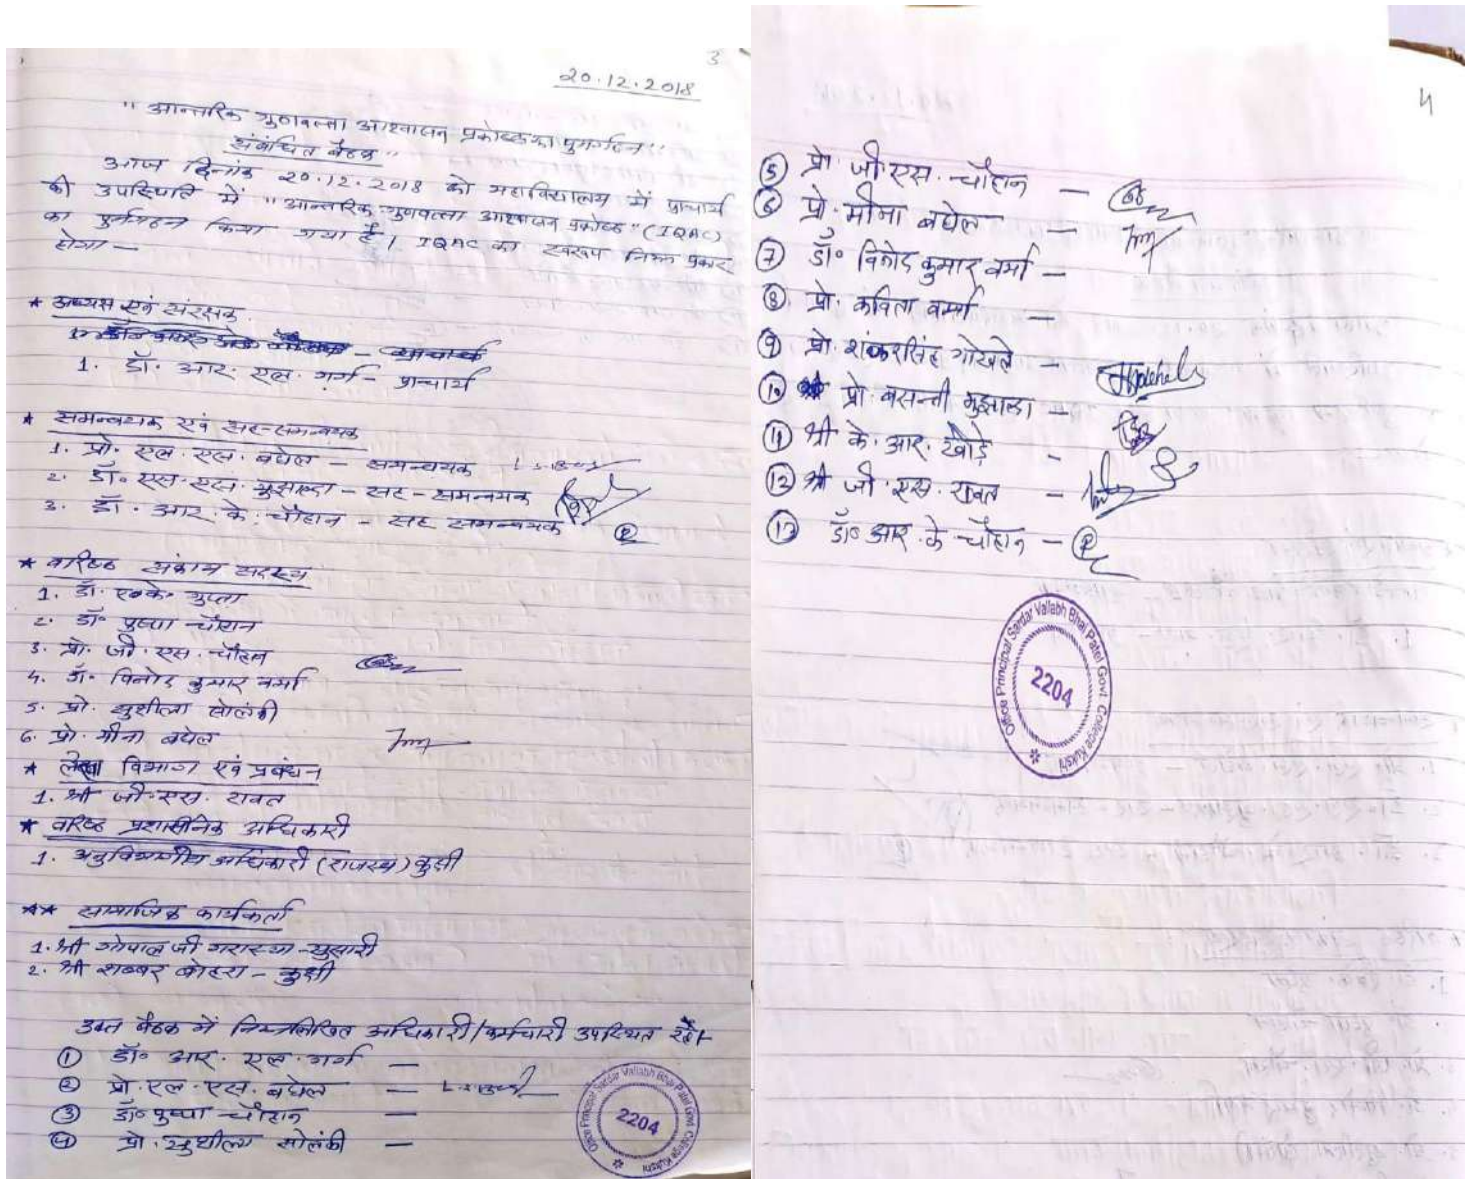 3
20.12.2018
"आन्तरिक गुणवत्ता आश्वासन प्रकोष्ठ का पुनर्गठन"
संबंधित बैठक"
आज दिनांक 20.12.2018 को महाविद्यालय में प्राचार्य
की उपस्थिति में "आन्तरिक गुणवत्ता आश्वासन प्रकोष्ठ" (IQAC)
का पुर्नगठन किया गया है। IQAC का स्वरूप निम्न प्रकार
होगा —
* अध्यक्ष एवं संरक्षक
1. डॉ. आर. एल. गर्ग - प्राचार्य
* समन्वयक एवं सह-समन्वयक
1. प्रो. एल. एस. बघेल - समन्वयक
2. डॉ. एस. एस. मुझाल्दा - सह-समन्वयक
3. डॉ. आर. के. चौहान - सह समन्वयक
* वरिष्ठ संकाय सदस्य
1. डॉ. एस.के. गुप्ता
2. डॉ॰ पुष्पा चौहान
3. प्रो. जी. एस. चौहान
4. डॉ॰ विनोद कुमार वर्मा
5. प्रो. सुशीला सोलंकी
6. प्रो. मीना बघेल
* लेखा विभाग एवं प्रबंधन
1. श्री जी. एस. रावत
* वरिष्ठ प्रशासनिक अधिकारी
1. अनुविभागीय अधिकारी (राजस्व) कुक्षी
** सामाजिक कार्यकर्ता
1. श्री गोपाल जी - सुसारी
2. श्री शब्बर बोहरा - कुक्षी
उक्त बैठक में निम्नलिखित अधिकारी/कर्मचारी उपस्थित रहे।-
① डॉ॰ आर. एल. गर्ग —
② प्रो. एल. एस. बघेल —
③ डॉ॰ पुष्पा चौहान —
④ प्रो. सुशीला सोलंकी —
Office Principal Sardar Vallabh Bhai Patel Govt. College Kukshi
2204
4
⑤ प्रो. जी. एस. चौहान —
⑥ प्रो. मीना बघेल —
⑦ डॉ॰ विनोद कुमार वर्मा —
⑧ प्रो. कविता वर्मा —
⑨ प्रो. शंकरसिंह गोखले —
⑩ प्रो. बसन्ती मुझाल्दा —
⑪ श्री के. आर. खोड़े -
⑫ श्री जी. एस. रावत —
⑬ डॉ॰ आर. के चौहान —
Office Principal Sardar Vallabh Bhai Patel Govt. College Kukshi
2204